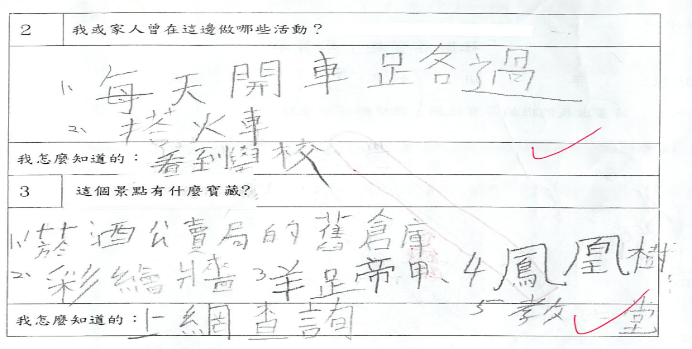 2 我或家人曾在這邊做哪些活動？
1、每天開車路過
2、搭火車
我怎麼知道的：看到學校
3 這個景點有什麼寶藏?
1、菸酒公賣局的舊倉庫
2、彩繪牆 3羊足帝甲、4鳳凰樹
5教堂
我怎麼知道的：上網查詢